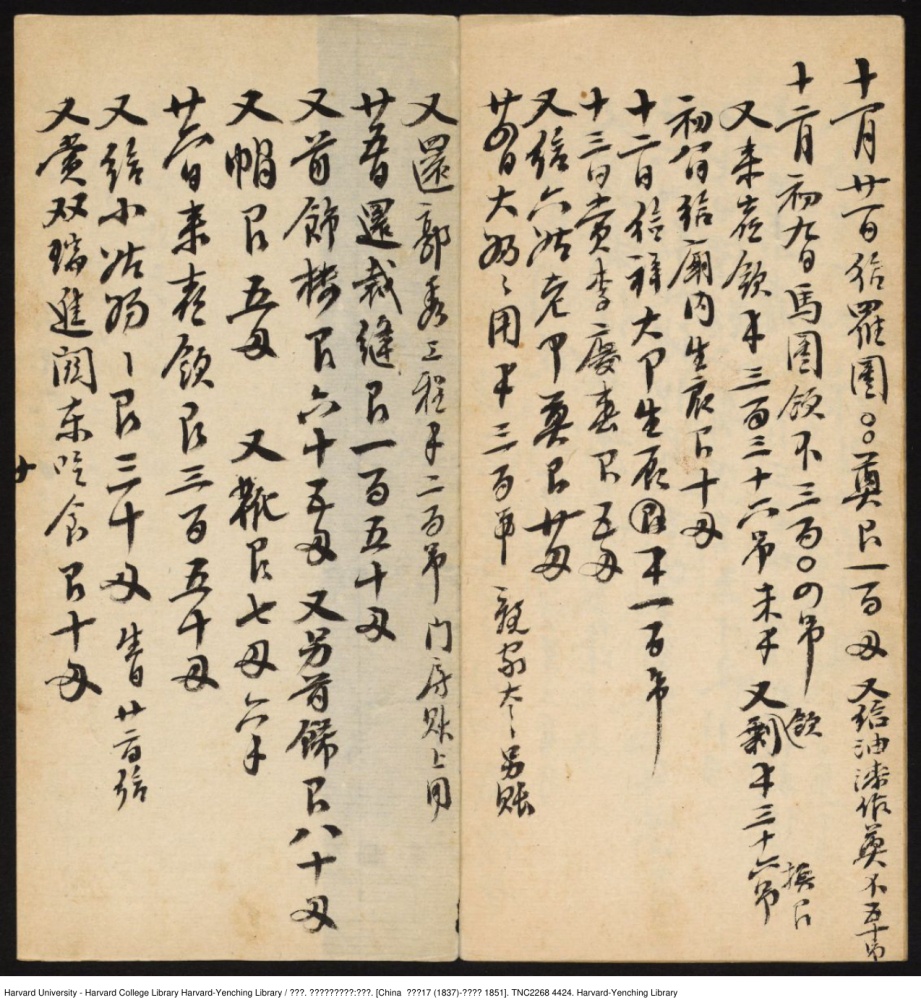 十一月廿一日給羅圈〇〇奠艮一百双 又給油漆作奠卞五十吊
十二月初九日馬圈領卞三百〇四吊
又来喜領卞三百三十六吊未卞 又剩卞三十六吊 換艮
初十日給廟内生辰艮十双
十二日給祥大甲生辰卞一百吊
十三日賞李慶春艮五双
又給六姑老甲奠艮廿双
廿四日大奶〻用卞三百吊 親家太〻另賬
又還郭秀工程卞二百吊 门房賬上同
廿五日還裁縫艮一百五十双
又首飾楼艮六十五双 又另首飾艮八十双
又帽艮五双 又靴艮七双六卞
廿六日来喜領艮三百五十双
又給小姑奶〻艮三十双 生日廿二日給
又賞双瑞進関東吃食艮十双
Harvard University - Harvard College Library Harvard-Yenching Library / ???. ?????????:???. [China ???17 (1837)-???? 1851]. TNC2268 4424. Harvard-Yenching Library